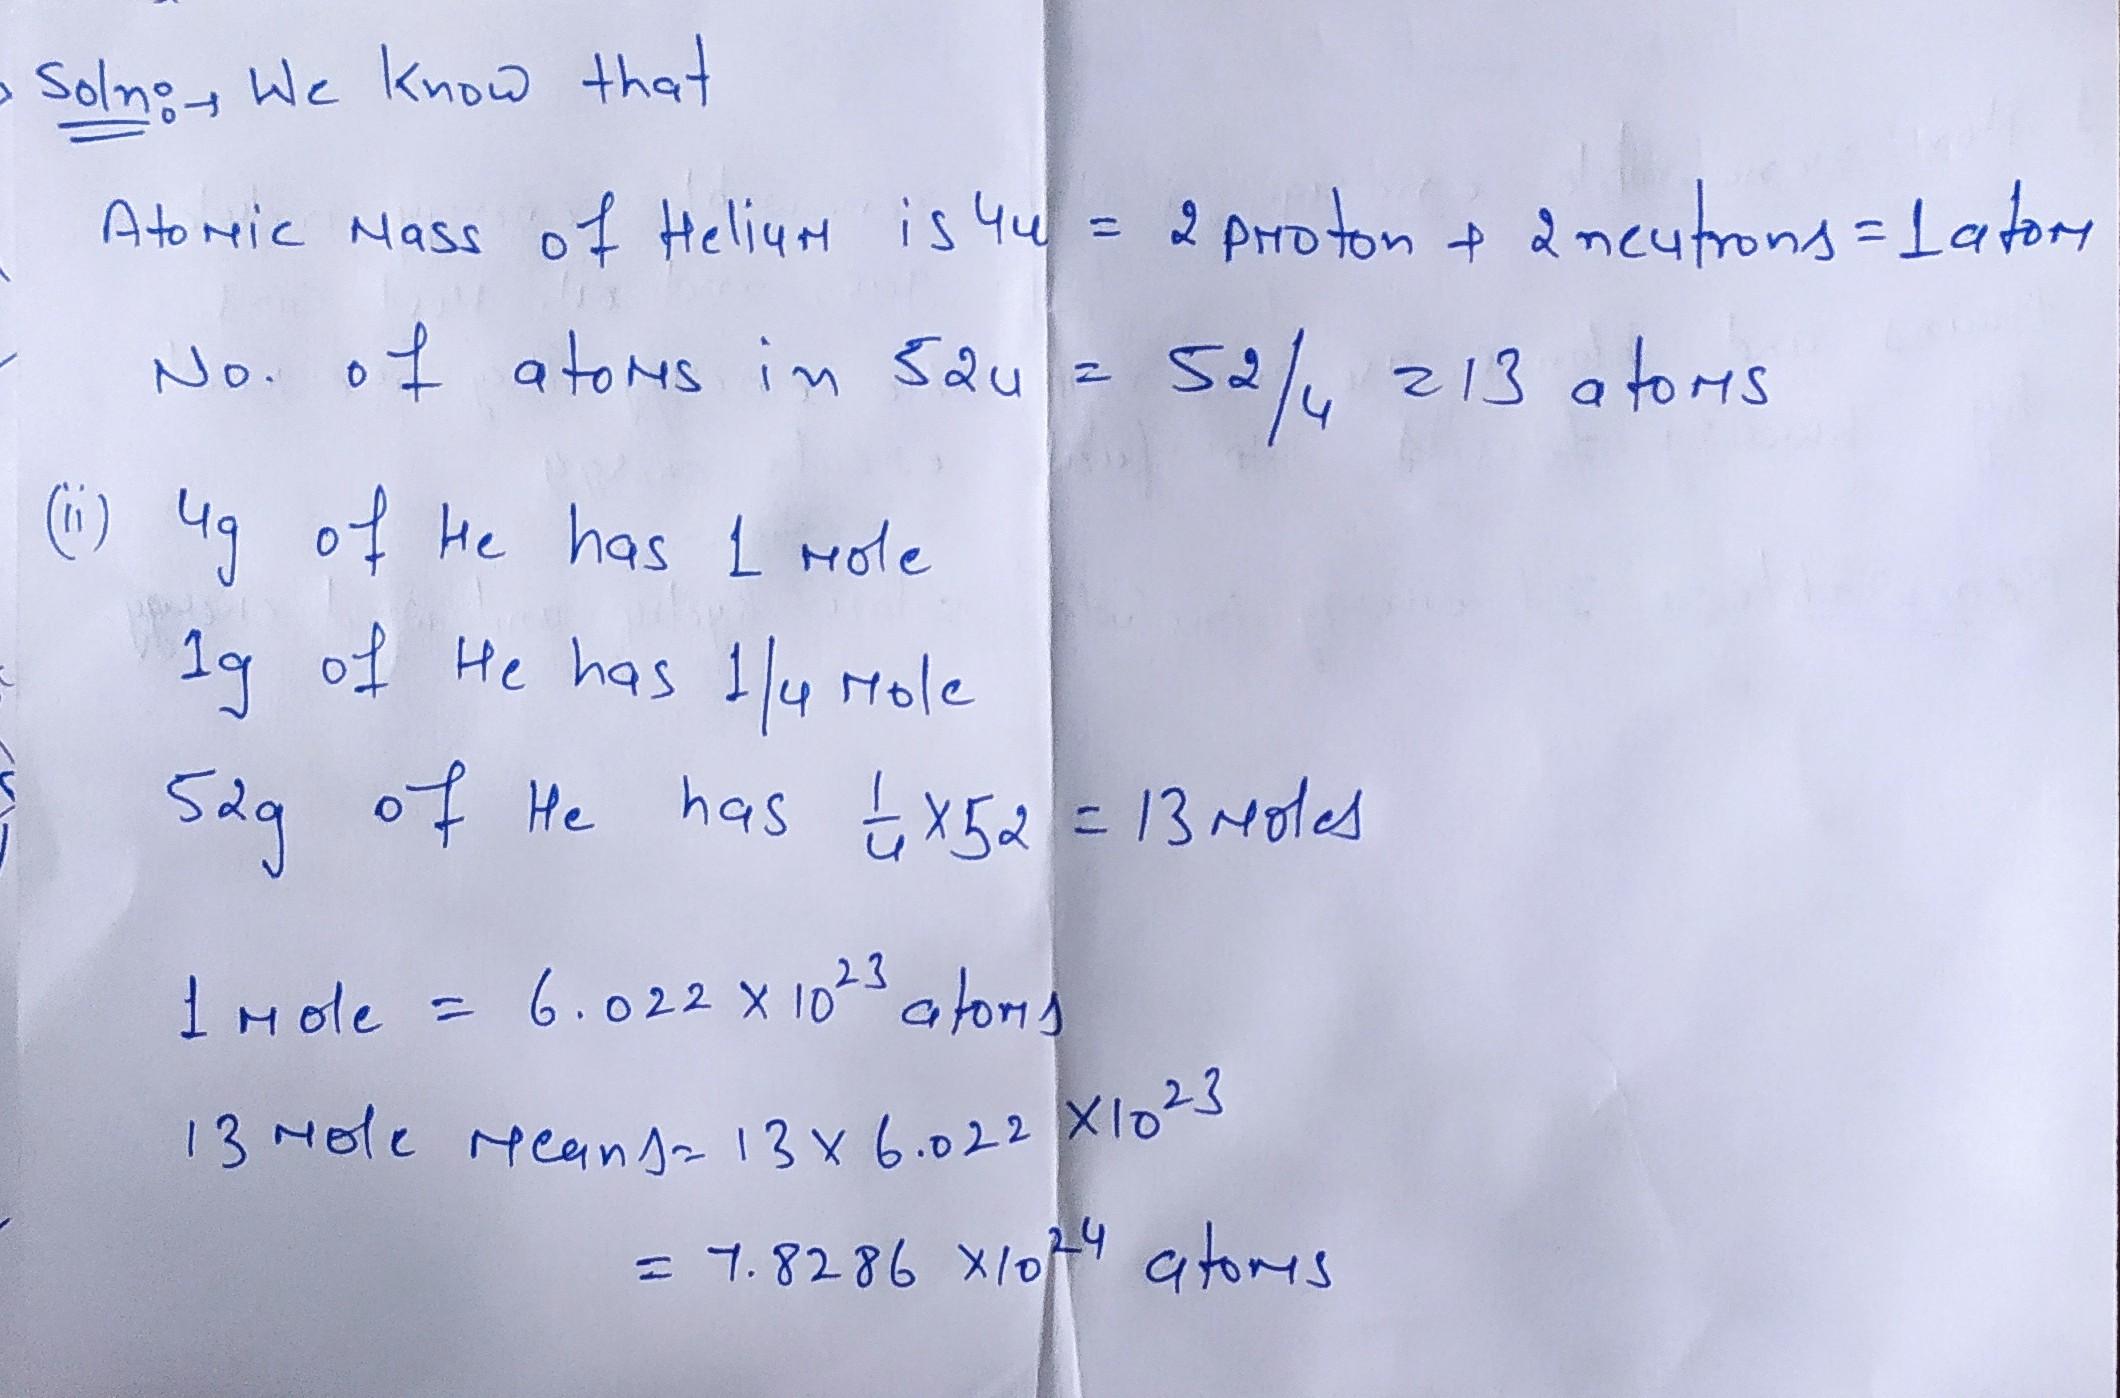 Soln:→ We know that
Atomic Mass of Helium is 4u = 2 proton + 2 neutrons = 1 atom
No. of atoms in 52u = 52/4 = 13 atoms
(ii) 4g of He has 1 mole
1g of He has 1/4 Mole
52g of He has 1/4 × 52 = 13 moles
1 Mole = 6.022 × 10²³ atoms
13 mole means = 13 × 6.022 × 10²³
= 7.8286 × 10²⁴ atoms